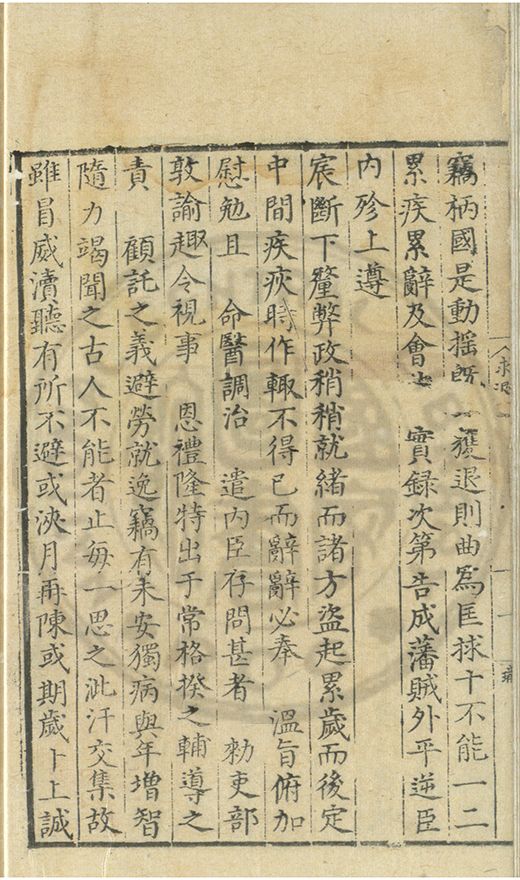 竊柄國是動揺旣 獲退則曲爲匡捄十不能一二
累疾累辭及會 實録次第告成藩賊外平逆臣
内殄上遵
宸斷下釐弊政稍稍就緒而諸方盜起累歲而後定
中間疾疢時作輙不得已而辭辭必奉 溫旨俯加
慰勉且 命醫調治 遣内臣存問甚者 勑吏部
敦諭趣令視事 恩禮隆特出于常格揆之輔導之
責 顧託之義避勞就逸竊有未安獨病與年增智
隨力竭聞之古人不能者止每一思之泚汗交集故
雖冒威瀆聽有所不避或浹月再陳或期歲卜上誠
求退